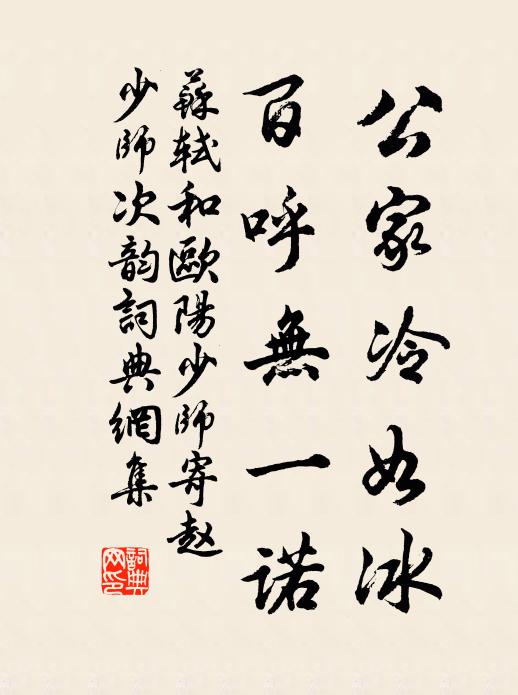 公家冷如冰
百呼無一诺
蘇轼和歐陽少師寄赵
少師次韵詞典網集
詞典
网印